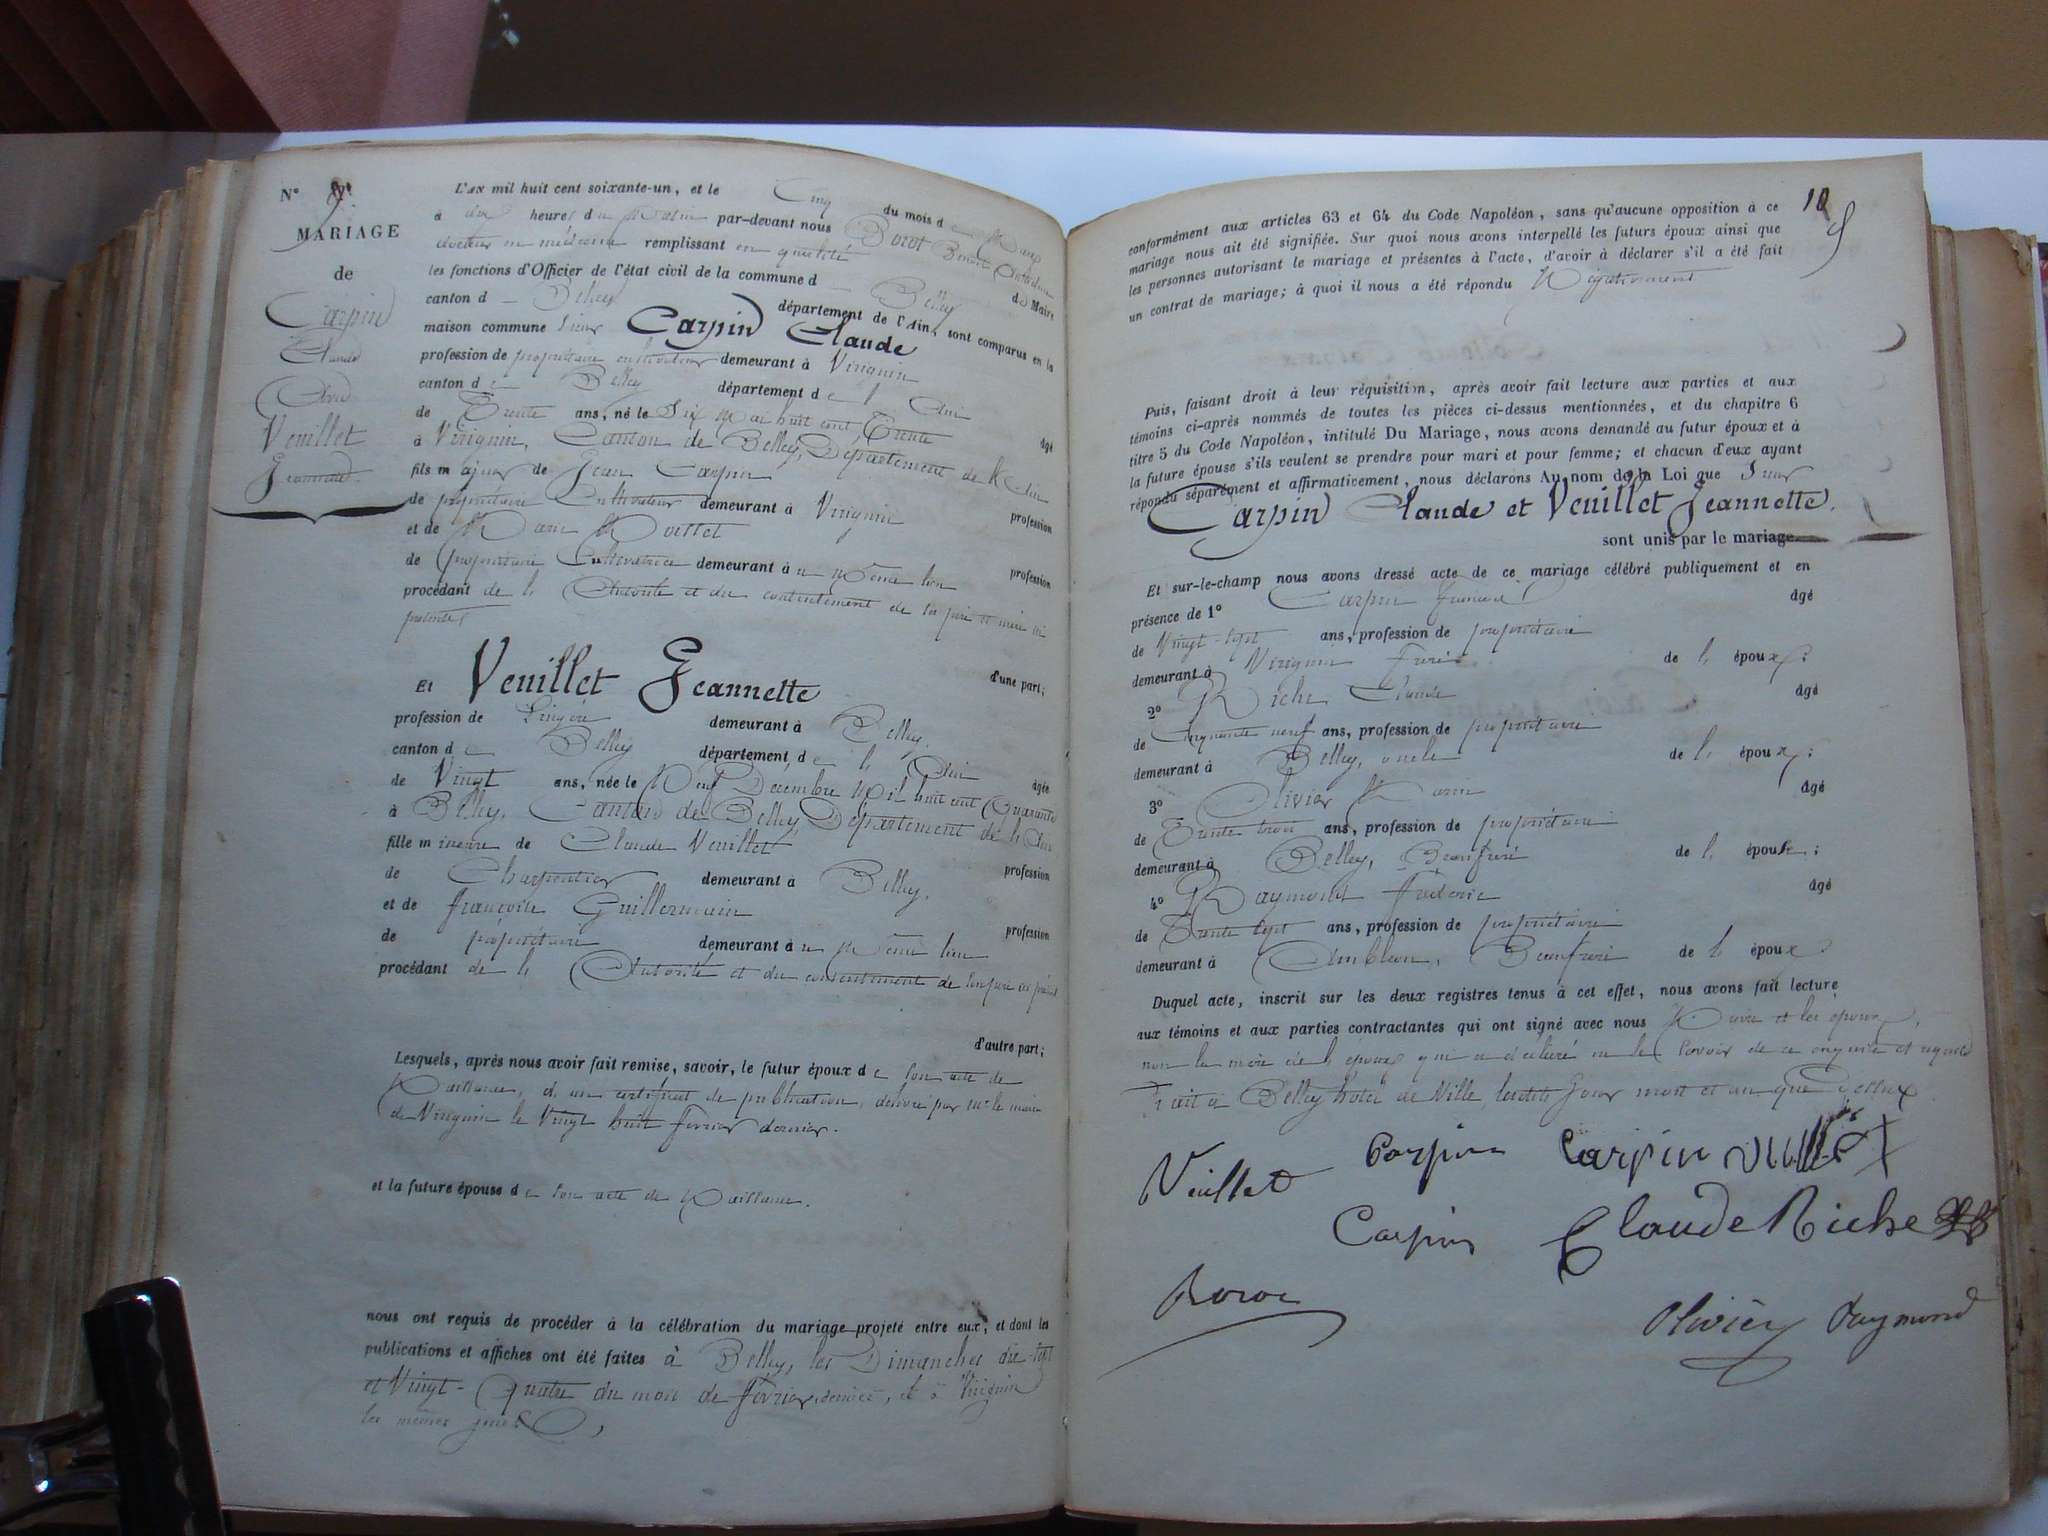 N° 9.
MARIAGE
de
Carpin
Claude
Avec
Veuillet
Jeannette.
L'AN mil huit cent soixante-un, et le Cinq du mois de Mars
à dix heures du Matin par-devant nous Borot Benoit Anthelme
docteur en médecine remplissant en qualité de Maire
les fonctions d'Officier de l'état civil de la commune d Belley
canton d Belley département de l'Ain, sont comparus en la
maison commune Sieur Carpin Claude
profession de propriétaire cultivateur demeurant à Virignin
canton de Belley département de l'Ain âgé
de Trente ans, né le Six Mai huit cent Trente
à Virignin, Canton de Belley, Département de l'Ain
fils majeur de Jean Carpin profession
de propriétaire Cultivateur demeurant à Virignin
et de Marie profession
de propriétaire Cultivatrice demeurant à u Même lieu
procédant de l'Autorité et du contentement de ses père et mère ici
présents d'une part;
Et Veuillet Jeannette
profession de Lingère demeurant à Belley.
canton de Belley département de l'Ain âgée
de Vingt ans, née le Neuf Décembre Mil huit cent Quarante
à Belley, Canton de Belley, Département de l'Ain
fille mineure de Claude Veuillet profession
de Charpentier demeurant à Belley.
et de Françoise Guillermain profession
de propriétaire demeurant à u Même lieu
procédant de l'Autorité et du consentement de ses père ici présents
d'autre part;
Lesquels, après nous avoir fait remise, savoir, le futur époux de son acte de
Naissance, d'un certificat de publication, délivré par Mr le maire
de Virignin le Vingt huit février dernier.
et la future épouse de son acte de Naissance.
nous ont requis de procéder à la célébration du mariage projeté entre eux, et dont les
publications et affiches ont été faites à Belley, les Dimanches dix-sept
et Vingt-Quatre du mois de Février dernier, et à Virignin
les mêmes jours,
10
conformément aux articles 63 et 64 du Code Napoléon, sans qu'aucune opposition à ce
mariage nous ait été signifiée. Sur quoi nous avons interpellé les futurs époux ainsi que
les personnes autorisant le mariage et présentes à l'acte, d'avoir à déclarer s'il a été fait
un contrat de mariage; à quoi il nous a été répondu Négativement
Puis, faisant droit à leur réquisition, après avoir fait lecture aux parties et aux
témoins ci-après nommés de toutes les pièces ci-dessus mentionnées, et du chapitre 6
titre 5 du Code Napoléon, intitulé Du Mariage, nous avons demandé au futur époux et à
la future épouse s'ils veulent se prendre pour mari et pour femme; et chacun d'eux ayant
répondu séparément et affirmativement, nous déclarons Au nom de la Loi que Sieur
Carpin Claude et Veuillet Jeannette.
sont unis par le mariage
Et sur-le-champ nous avons dressé acte de ce mariage célébré publiquement et en
présence de 1° Carpin François âgé
de Vingt-sept ans, profession de propriétaire
demeurant à Virignin Frère de l'époux;
2° Riche Claude âgé
de Cinquante neuf ans, profession de propriétaire
demeurant à Belley, oncle de l'époux;
3° Olivier Marin âgé
de Trente trois ans, profession de propriétaire
demeurant à Belley, Beaufrère de l'époux;
4° Raymond Fréderic âgé
de Trente sept ans, profession de propriétaire
demeurant à Ambléon, Beaufrère de l'époux
Duquel acte, inscrit sur les deux registres tenus à cet effet, nous avons fait lecture
aux témoins et aux parties contractantes qui ont signé avec nous Maire et les époux,
non la mère de l'époux qui a déclaré ne le Savoir de ce enquise et requise
Fait à Belley hotel de Ville, lesdits Jour mois et an que dessus
Veuillet Carpin Carpin
Carpin Claude Riche
Borot
Olivier Raymond